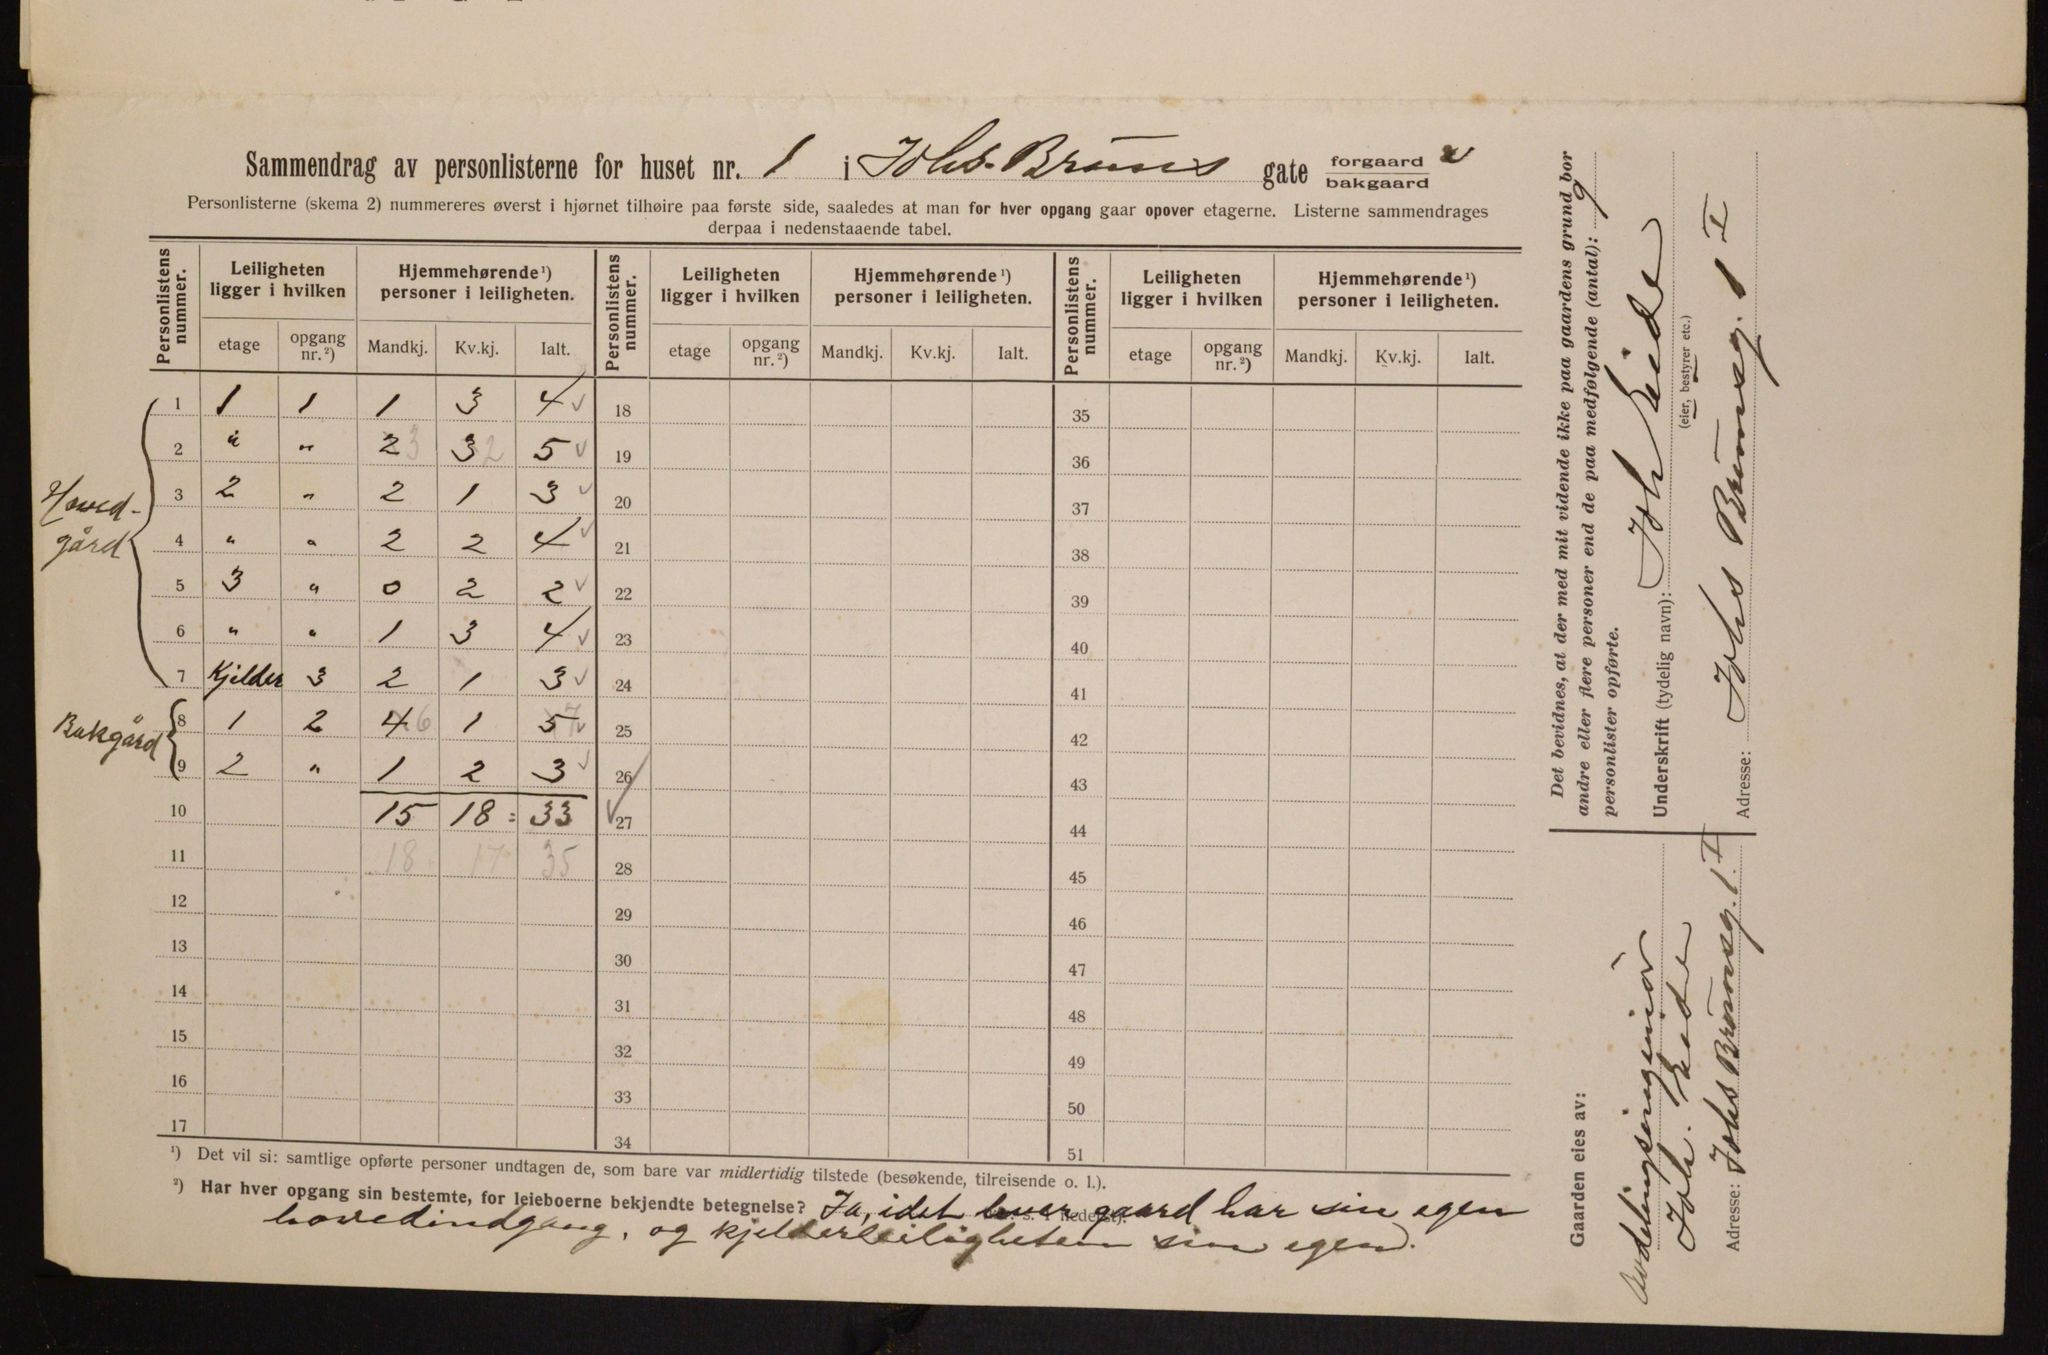 Sammendrag av personlisterne for huset nr. 1 i Johs. Bruns gate forgaard
bakgaard
Personlisterne (skema 2) nummereres øverst i hjørnet tilhøire paa første side, saaledes at man for hver opgang gaar opover etagerne. Listerne sammendrages
derpaa i nedenstaaende tabel.
Personlistens nummer. Leiligheten ligger i hvilken Hjemmehørende¹) personer i leiligheten. Personlistens nummer. Leiligheten ligger i hvilken Hjemmehørende¹) personer i leiligheten. Personlistens nummer. Leiligheten ligger i hvilken Hjemmehørende¹) personer i leiligheten.
etage opgang nr.²) Mandkj. Kv.kj. Ialt. etage opgang nr.²) Mandkj. Kv.kj. Ialt. etage opgang nr.²) Mandkj. Kv.kj. Ialt.
Hovedgård
1 1 1 1 3 4 ✓ 18 35
2 " " 2 3 3 2 5 ✓ 19 36
3 2 " 2 1 3 ✓ 20 37
4 " " 2 2 4 ✓ 21 38
5 3 " 0 2 2 ✓ 22 39
6 " " 1 3 4 ✓ 23 40
7 Kjelder 3 2 1 3 ✓ 24 41
Bakgård
8 1 2 4 6 1 5 7 ✓ 25 42
9 2 " 1 2 3 ✓ 26 43
10 15 18 = 33 ✓ 27 44
11 18 17 35 28 45
12 29 46
13 30 47
14 31 48
15 32 49
16 33 50
17 34 51
¹) Det vil si: samtlige opførte personer undtagen de, som bare var midlertidig tilstede (besøkende, tilreisende o. l.).
²) Har hver opgang sin bestemte, for leieboerne bekjendte betegnelse? Ja, idet hver gaard har sin egen
hovedindgang, og kjelderleiligheten sin egen.
Det bevidnes, at der med mit vidende ikke paa gaardens grund bor
andre eller flere personer end de paa medfølgende (antal): 9
personlister opførte.
Underskrift (tydelig navn): Joh Eide
(eier, bestyrer etc.)
Adresse: Johs Brunsg. 1 I
Gaarden eies av:
Avdelingsingeniør
Joh. Eide
Adresse: Johs Brunsg. 1. I